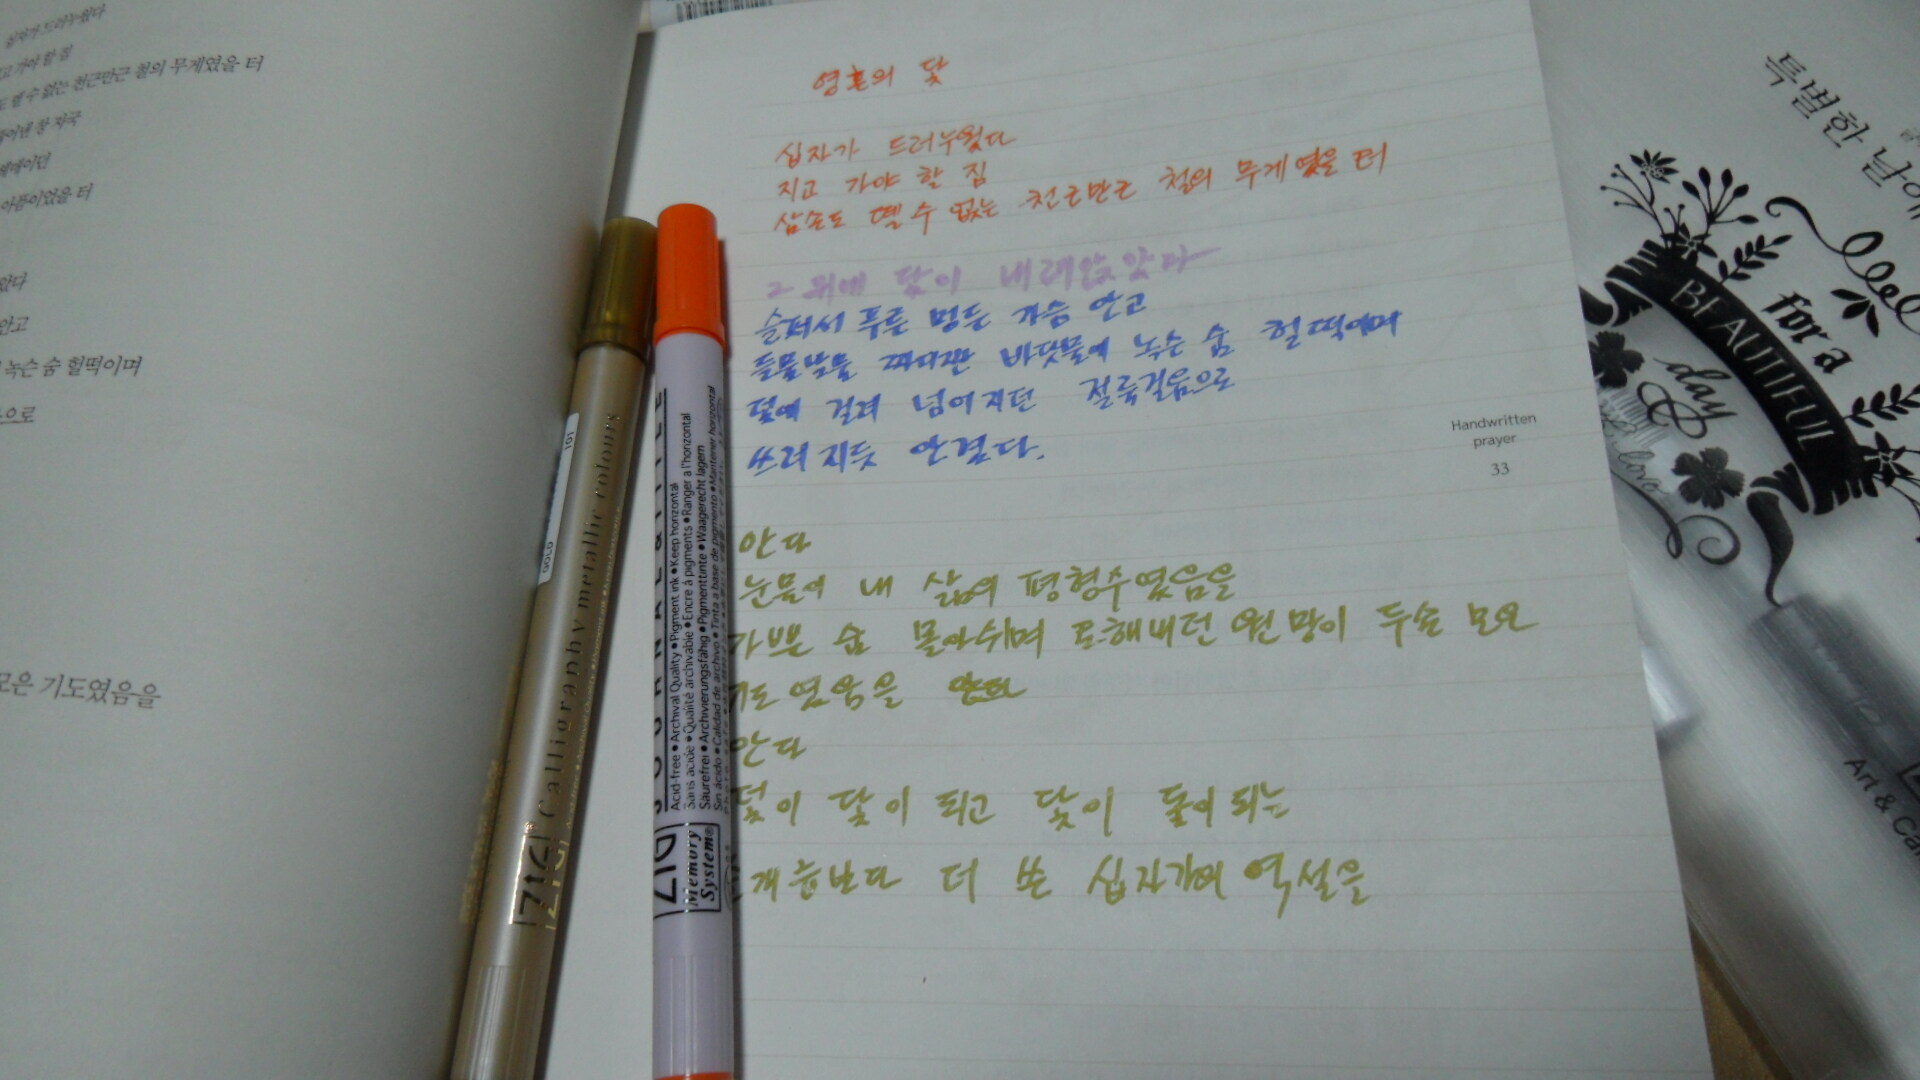 십자가 드러누웠다
고 가야 할 짐
도 뗄 수 없는 천근만근 철의 무게였을 터
창 자국
아픔이었을 터
안고
녹슨 숨 헐떡이며
으로
모은 기도였음을
영혼의 닻
십자가 드러누웠다
지고 가야 할 짐
삽손도 뗄 수 없는 천근만근 철의 무게였을 터
그 위에 닻이 내려앉았다
슬퍼서 푸른 멍든 가슴 안고
들물날물 짜디짠 바닷물에 녹슨 숨 헐떡이며
덫에 걸려 넘어지던 절룩걸음으로
쓰러지듯 안겼다.
안다
눈물이 내 삶의 평형수였음을
가쁜 숨 몰아쉬며 토해내던 원망이 두손 모은
기도였음을 안다
안다
덫이 닻이 되고 닻이 돛이 되는
걔들보다 더 쓴 십자가의 역설을
Handwritten
prayer
33
ZIG Calligraphy metallic colours
GOLD
101
Acid-free • Archival Quality • Pigment ink • Keep horizontal
Sans acide • Qualité archivable • Encre à pigments • Ranger à l'horizontal
Saurefrei • Archivierungsfähig • Pigmenttinte • Waagerecht lagern
Sin acido • Calidad de archivo • Tinta a base de pigmento • Mantener horizontal
ZIG
Memory
System®
특별한 날에
BEAUTIFUL
for a
day
Art & Cal